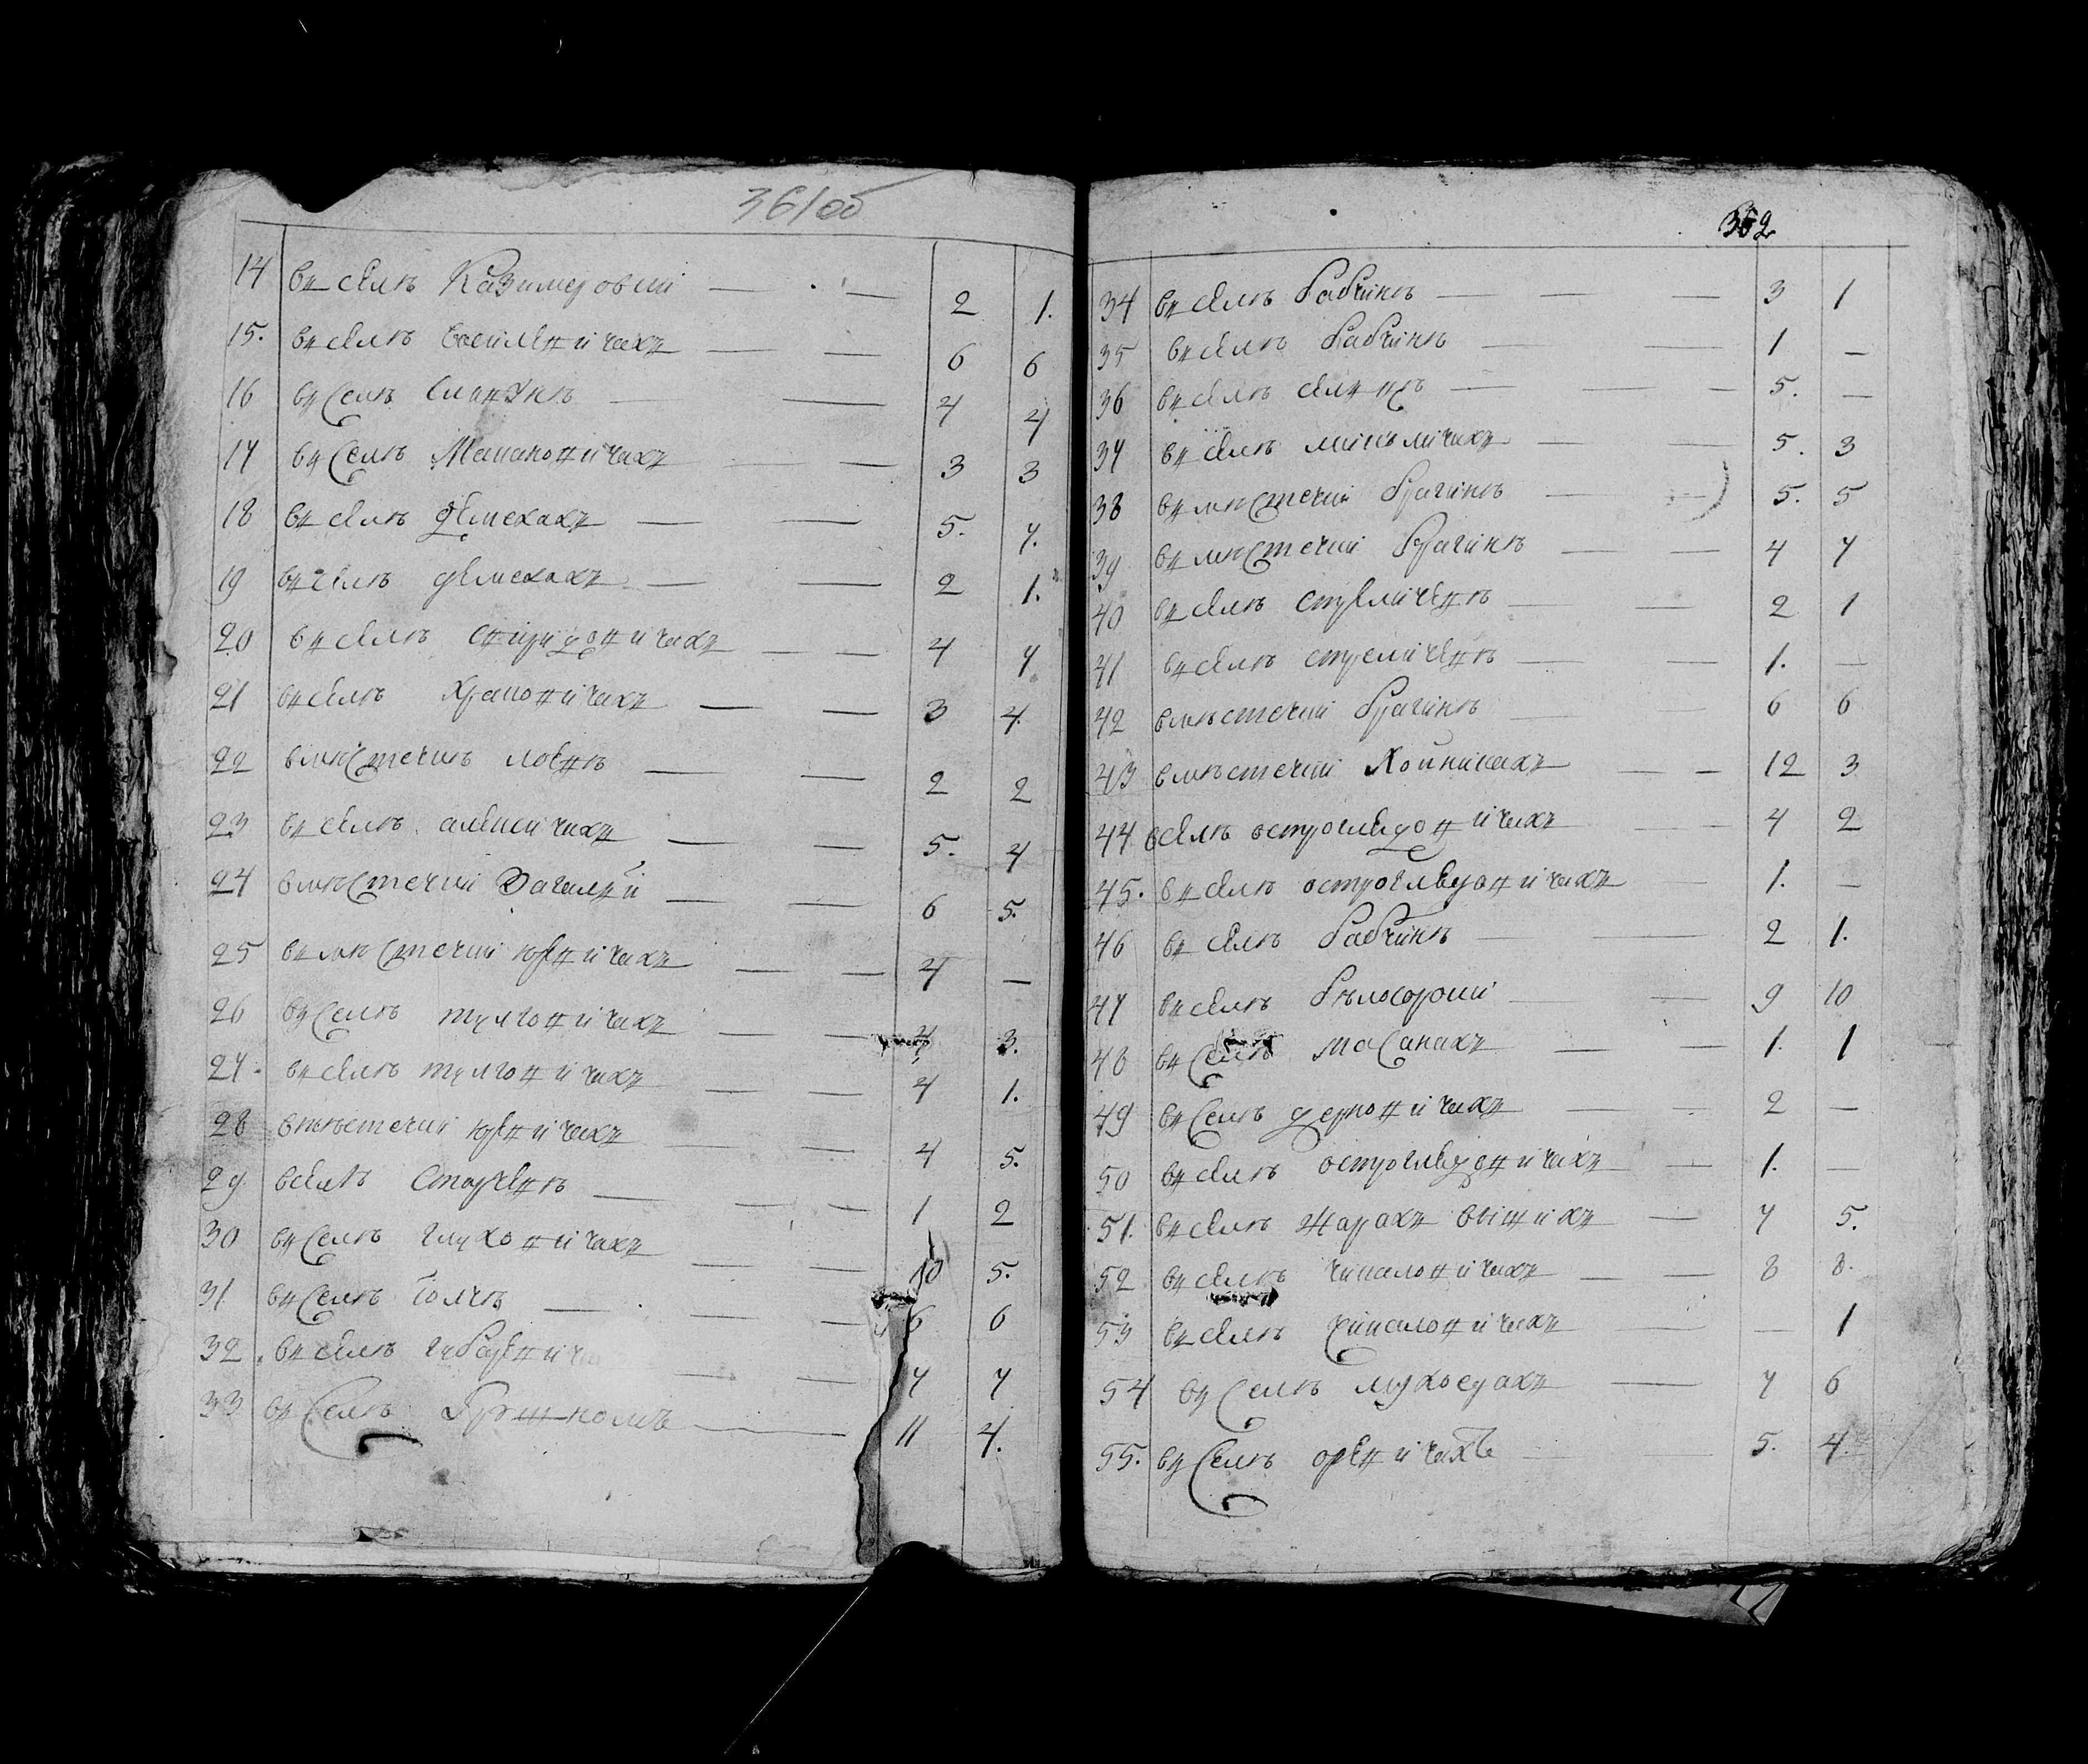 361об
14 въ селѣ Казимеровки — — 2 1.
15. въ селѣ василевичахъ — — 6 6
16 въ селѣ — — 4 4
17 въ селѣ Малановичахъ — — 3 3
18 въ селѣ демехахъ — — 5. 7.
19 въ селѣ демехахъ — — 2 1.
20 въ селѣ спиридовичахъ — — 4 7
21 въ селѣ Храповичахъ — — 3 4.
22 вмѣстечкѣ лоевѣ — — 2 2
23 въ селѣ алексичахъ — — 5. 4
24 вмѣстечки — — 6 5.
25 въ мѣстечки юревичахъ — — 4 —
26 въ селѣ тулговичахъ — — 4 3.
27. въ селѣ тулговичахъ — — 4 1.
28 вмѣстечки юревичахъ — — 4 5.
29 вселѣ — — 1 2
30 въ селѣ глуховичахъ — — 10 5.
31 въ селѣ — — 6 6
32. въ селѣ — — 7 7
33 въ селѣ — — 11 4.
362
34 въ селѣ бабчинѣ — — — 3 1
35 въ селѣ бабчинѣ — — 1 —
36 въ селѣ — — — 5. —
37 въ селѣ — — 5. 3
38 въ мѣстечки брагинѣ — — 5. 5
39 въ мѣстечки брагинѣ — — 4 7
40 въ селѣ стреличевѣ — — 2 1
41 въ селѣ стреличевѣ — — 1. —
42 вмѣстечки брагинѣ — — 6 6
43 вмѣстечки Хойникахъ — — 12 3
44 вселѣ остроглядовичахъ — — 4 2
45. въ селѣ остроглядовичахъ — 1. —
46 въ селѣ бабчинѣ — — 2 1.
47 въ селѣ бѣлосороки — — 9 10
48 въ селѣ масанахъ — — 1. 1
49 въ селѣ дерновичахъ — — 2 —
50 въ селѣ остроглядовичахъ — 1. —
51. въ селѣ жарахъ вышихъ — 7 5.
52 въ селѣ чикаловичахъ — — 8 8.
53 въ селѣ чикаловичахъ — — 1
54 въ селѣ мухоедахъ — 7 6
55. въ селѣ оревичахъ — — 5. 4.